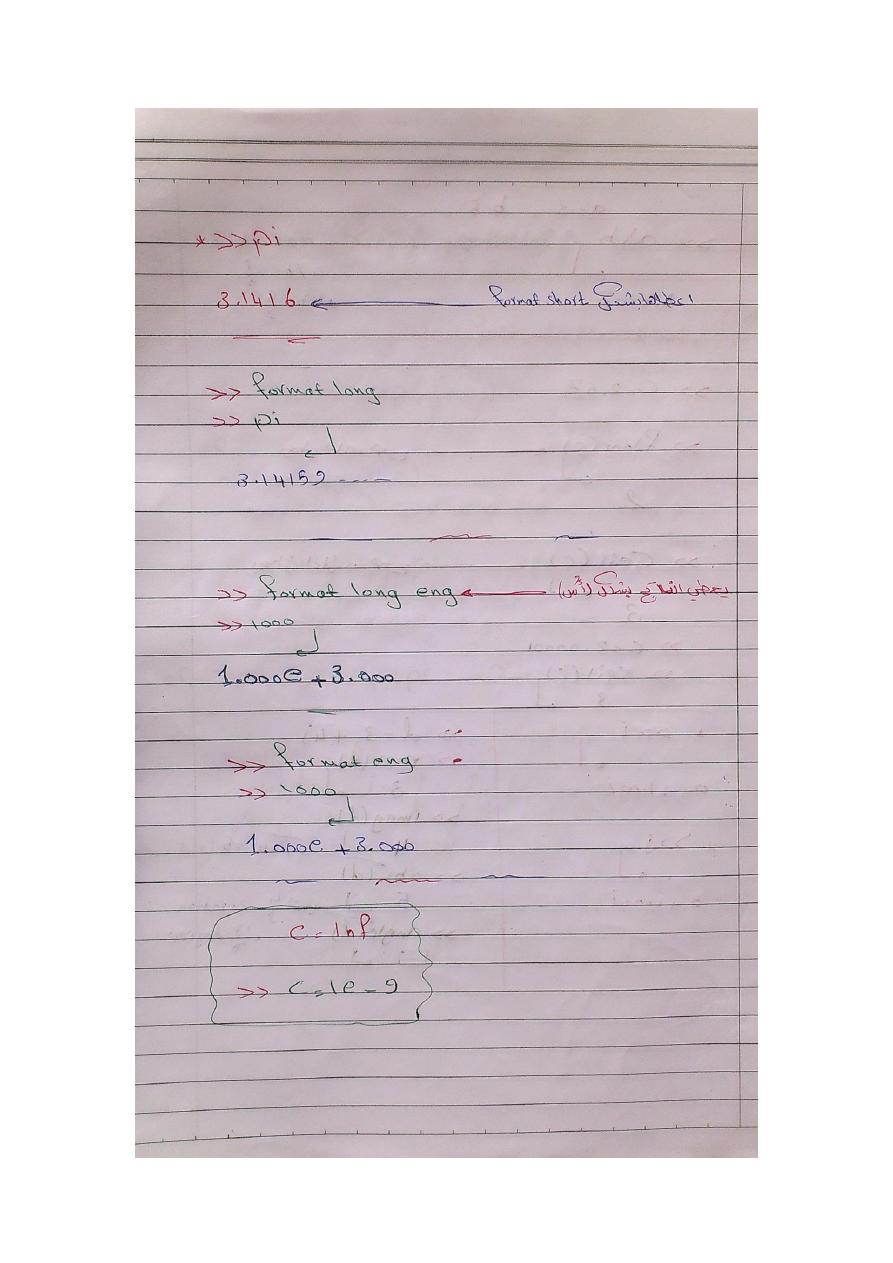 * >> pi
3.1416 ← format short اعطاها بشكل
>> format long
>> pi
3.14159 ----
>> format long eng ← يعطي الناتج بشكل (أس)
>> 1000
1.000e+3.000
>> format eng
>> 1000
1.000e+3.000
c = Inf
>> c=1e-9